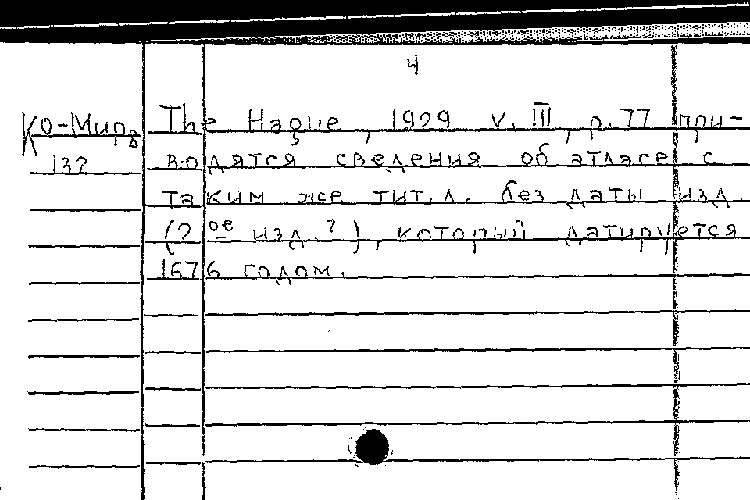 4
Ко-Мир
132
The Hague, 1929 v. III, p. 77 при-
водятся сведения об атласе с
таким же тит. л. без даты изд.
(2ое изд.?), который датируется
1676 годом.